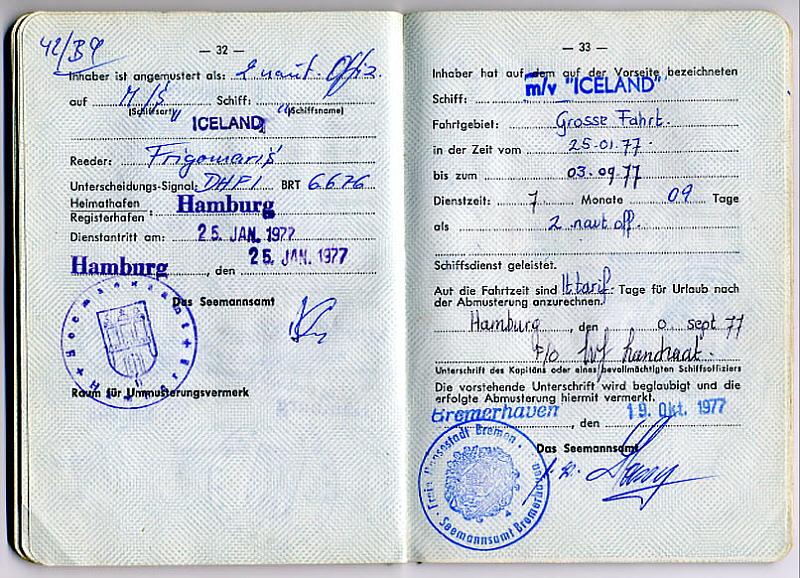 42/BG
— 32 —
Inhaber ist angemustert als: 2 naut. Offiz.
auf M/S Schiff: "
(Schiffsart) (Schiffsname)
ICELAND
Reeder: Frigomaris
Unterscheidungs-Signal: DHFI BRT 6676
Heimathafen
Registerhafen : Hamburg
Dienstantritt am: 25. JAN. 1977
Hamburg, den 25. JAN. 1977
Das Seemannsamt
Seemannsamt
Raum für Ummusterungsvermerk
— 33 —
Inhaber hat auf dem auf der Vorseite bezeichneten
Schiff: m/v "ICELAND"
Fahrtgebiet: Grosse Fahrt.
in der Zeit vom 25.01.77.
bis zum 03.09.77
Dienstzeit: 7 Monate 09 Tage
als 2 naut off.
Schiffsdienst geleistet.
Auf die Fahrtzeit sind lt. tarif Tage für Urlaub nach
der Abmusterung anzurechnen.
Hamburg, den 0 sept 77
F/O
Unterschrift des Kapitäns oder eines bevollmächtigten Schiffsoffiziers
Die vorstehende Unterschrift wird beglaubigt und die
erfolgte Abmusterung hiermit vermerkt.
Bremerhaven, den 19. Okt. 1977
Das Seemannsamt
Freie Hansestadt Bremen
Seemannsamt Bremerhaven